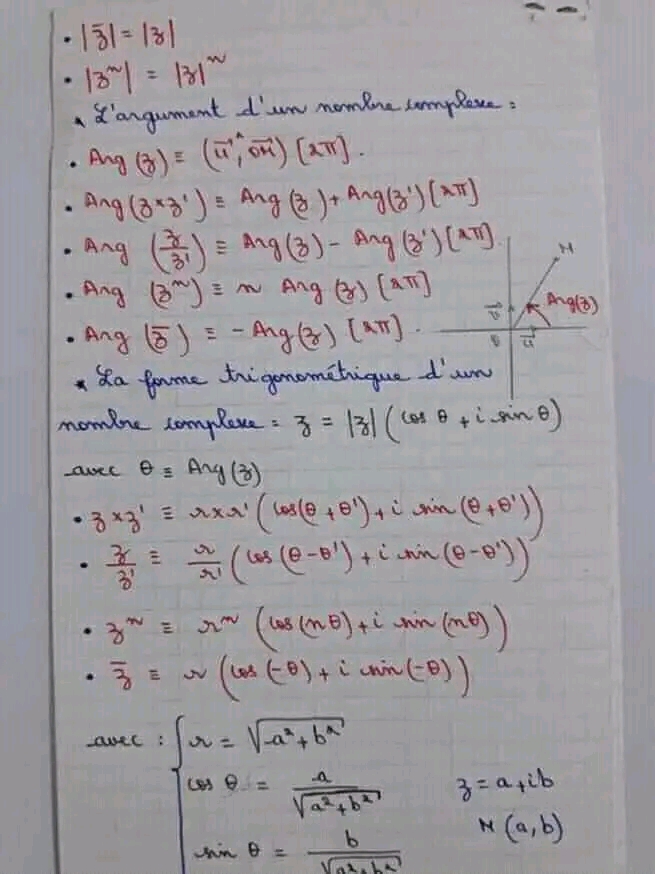 • |z̄| = |z|
• |zⁿ| = |z|ⁿ
* L'argument d'un nombre complexe :
• Arg (z) ≡ (u⃗ , OM⃗) [2π].
• Arg (z × z') ≡ Arg (z) + Arg(z') [2π]
• Arg (z/z') ≡ Arg(z) - Arg (z') [2π].
• Arg (zⁿ) ≡ n Arg (z) [2π]
• Arg (z̄) ≡ - Arg (z) [2π].
M
Arg(z)
v⃗
O u⃗
* La forme trigonométrique d'un
nombre complexe : z = |z| (cos θ + i sin θ)
avec θ ≡ Arg (z)
• z × z' ≡ r × r' (cos(θ + θ') + i sin (θ + θ'))
• z/z' ≡ r/r' (cos (θ - θ') + i sin (θ - θ'))
• zⁿ ≡ rⁿ (cos (nθ) + i sin (nθ))
• z̄ ≡ r (cos (-θ) + i sin (-θ))
avec : { r = √(a² + b²)
cos θ = a/√(a² + b²) z = a + ib
M (a, b)
sin θ = b/√(a² + b²)